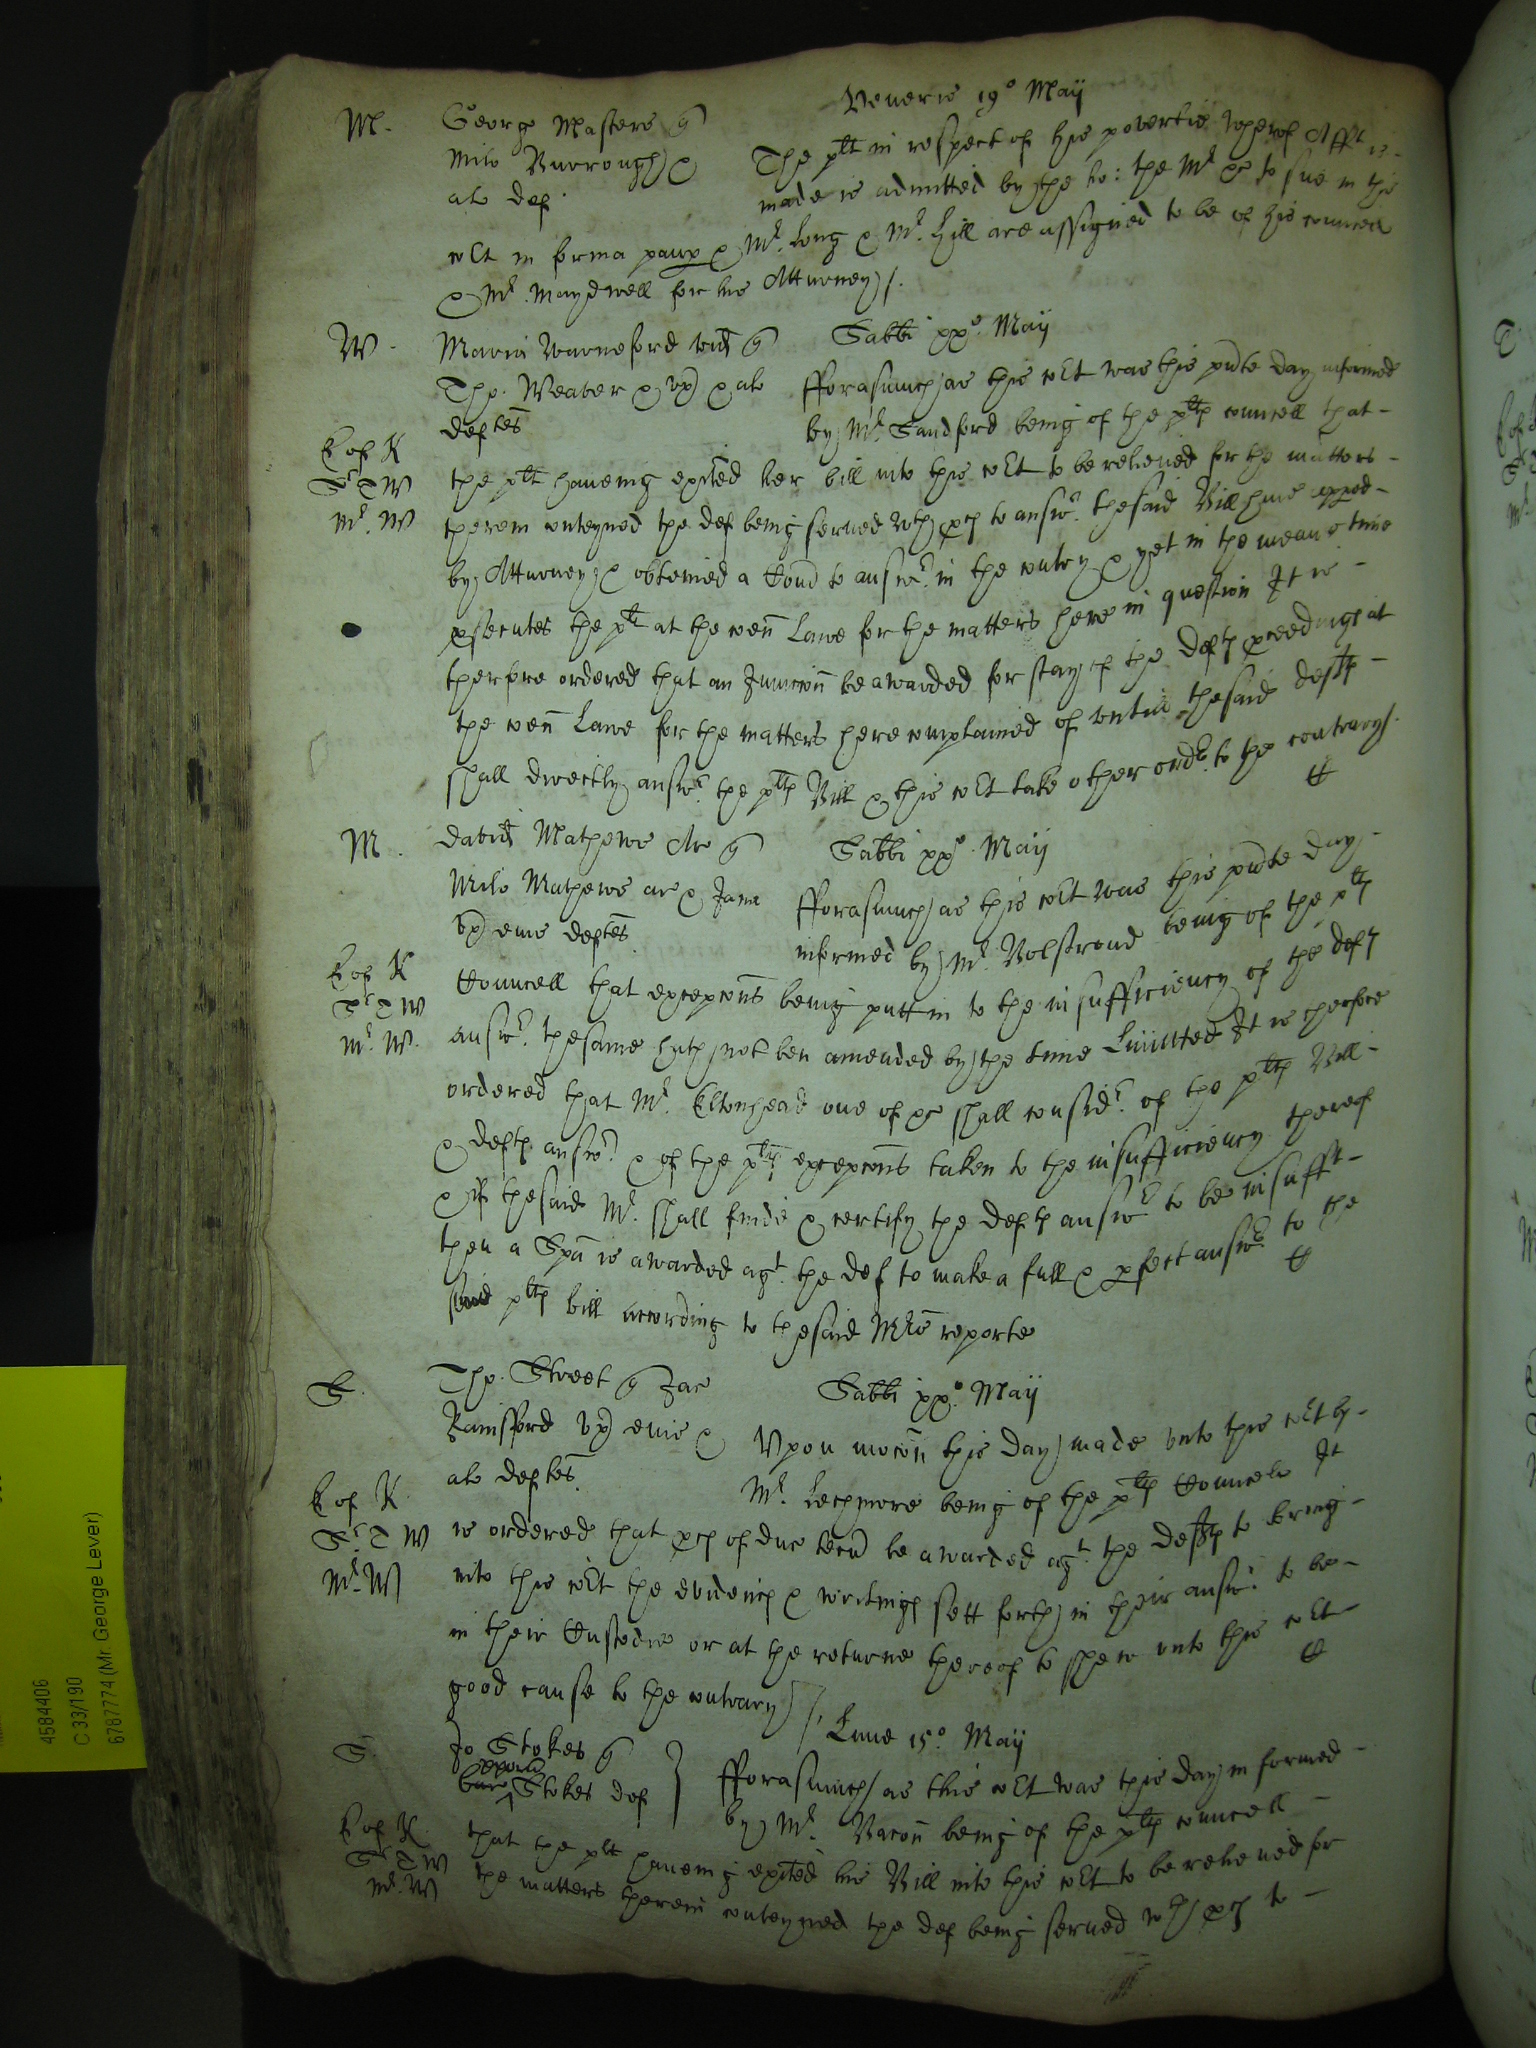 Veneris 19° Maij
M. George Masters q
Milo Burrough & The plt in respect of his povertie whereof Afft is
als def. made is admitted by the ho: the Mr &c to sue in this
cort in forma paup & Mr. Long & Mr. Hill are assigned to be of his councell
& Mr. Maydwell for his Attorney/.
W. Maria Warneford wid q Sabbi xx°. Maij
Tho. Weaver & ux & als fforasmuch as this cort was this pnte day informed
deftes by Mr. Sandford being of the plts councell that
E of K
Sr T W the plt haveing exited her bill into this cort to be relieved for the matters
Mr. W therein conteyned the def being served wth pcs to answr. the said Bill have apped
by Attorney & obteined a Comd to answr. in the cuntry & yet in the meane time
psecutes the plt at the coen Lawe for the matters here in question It is
therfore ordered that an Iniuccon be awarded for stay of the defts pceedings at
the coen Lawe for the matters here complained of untill the said defts
shall directly answr. the plts Bill & this cort take other ordr. to the contrary/.
M. David Mathewe Ar q Sabbi xx°. Maij
Milo Mathewe ar & Jana fforasmuch as this cort was this pnte day
ux eius deftes. informed by Mr. Bolstroud being of the plts
E of K Councell that excepcons being putt in to the insufficiency of the defts
Sr T W
Mr. W. answr. the same hath not ben amended by the time Limitted It is therfore
ordered that Mr. Eltonhead one of &c shall considr. of the plts Bill
& defts answr. & of the plts excepcons taken to the insufficiency thereof
& if the said Mr. shall finde & certify the defts answr to be insufft
then a Spa is awarded agt. the def to make a full & pfect answr. to the
said plts bill according to the said Mrs reporte
S. Tho. Street q Jac Sabbi xx°. Maij
Rainsford ux eius & Upon mocon this day made unto this cort by
als deftes. Mr. Lechmore being of the plts Councele It
E of K
Sr T W is ordered that pcs of duc tecu be awarded agt. the defts to bring
Mr. W into this cort the evidences & writings sett forth in their answr. to be
in their Custodie or at the returne thereof to shew unto this cort
good cause to the contrary/
S. Jo Stokes q Lune 15°. Maij
Stokes def fforasmuch as this cort was this day informed
by Mr. Bacon being of the plts councell
E of K that the plt haveing exited his Bill into this cort to be relieved for
Sr T W
Mr. W the matters therein conteyned the def being served wth pcs to
4584406
C 33/190
6787774 (Mr. George Lever)